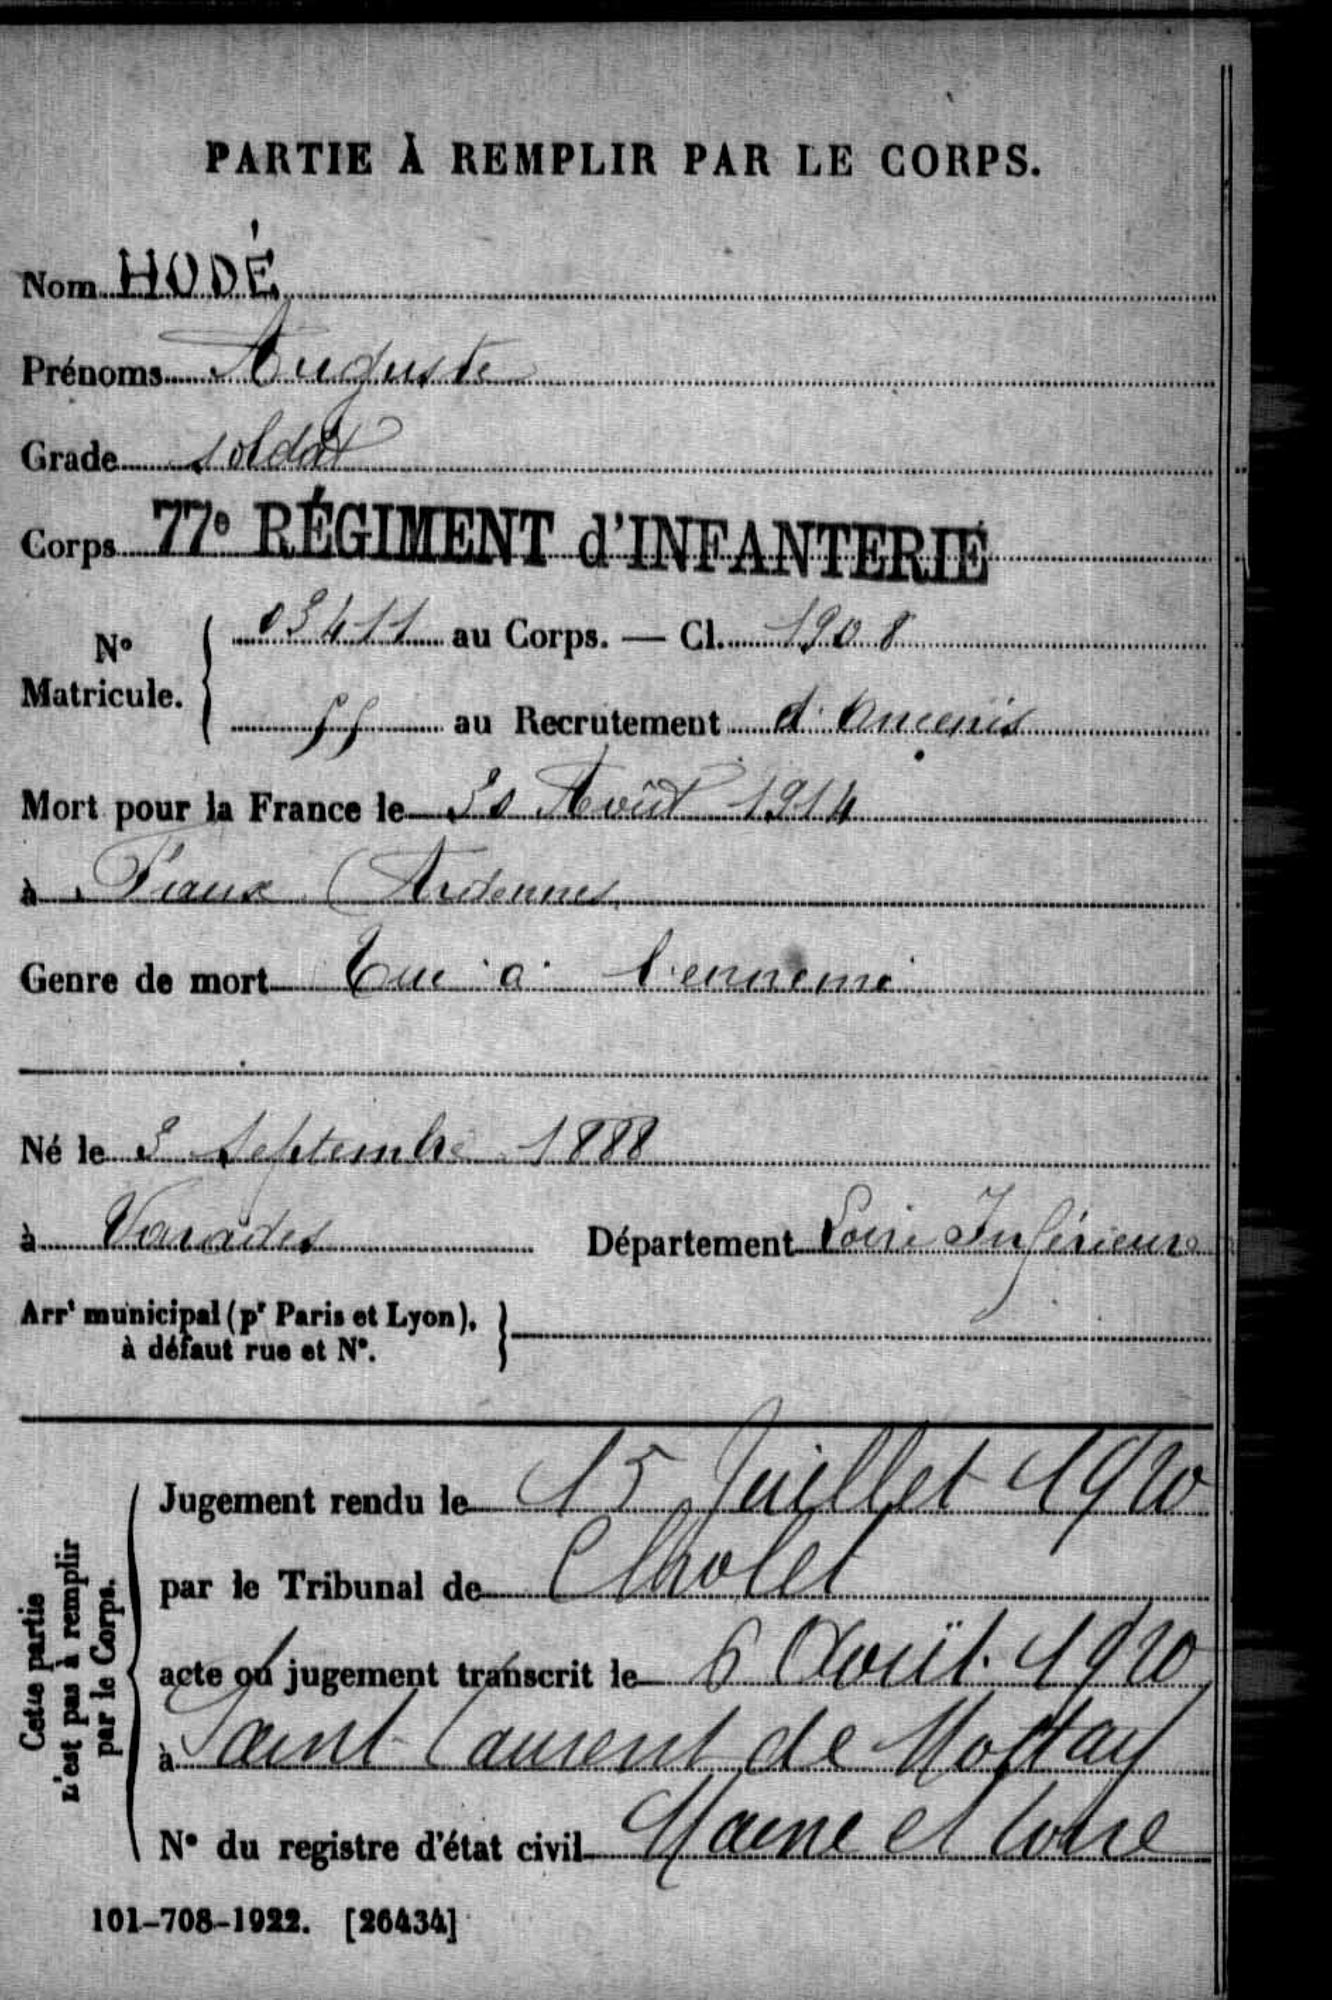 PARTIE À REMPLIR PAR LE CORPS.
Nom HODÉ
Prénoms Auguste
Grade soldat
Corps 77e RÉGIMENT d'INFANTERIE
No Matricule. 03411 au Corps. — Cl. 1908
55 au Recrutement d'Ancenis
Mort pour la France le 30 Août 1914
à (Ardennes
Genre de mort Tué à l'ennemi
Né le 3 Septembre 1888
à Varades Département Loire Inférieure
Arrt municipal (pr Paris et Lyon),
à défaut rue et No.
Cette partie
n'est pas à remplir
par le Corps.
Jugement rendu le 15 Juillet 1920
par le Tribunal de Cholet
acte ou jugement transcrit le 6 Août 1920
à Saint Laurent de Mottay
No du registre d'état civil Maine et Loire
101-708-1922. [26434]